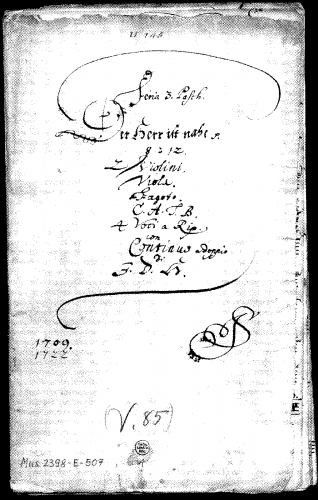 U 146
Feria 3. Pasch.
Der Herr ist nahe p.
à 12.
2 Violini.
Viola.
Fagoto.
C. A. T. B.
4 Voci a Rip.
con
Continuo doppio
di
J. D. H.
1709.
1722
(V. 85)
Mus. 2398-E-507